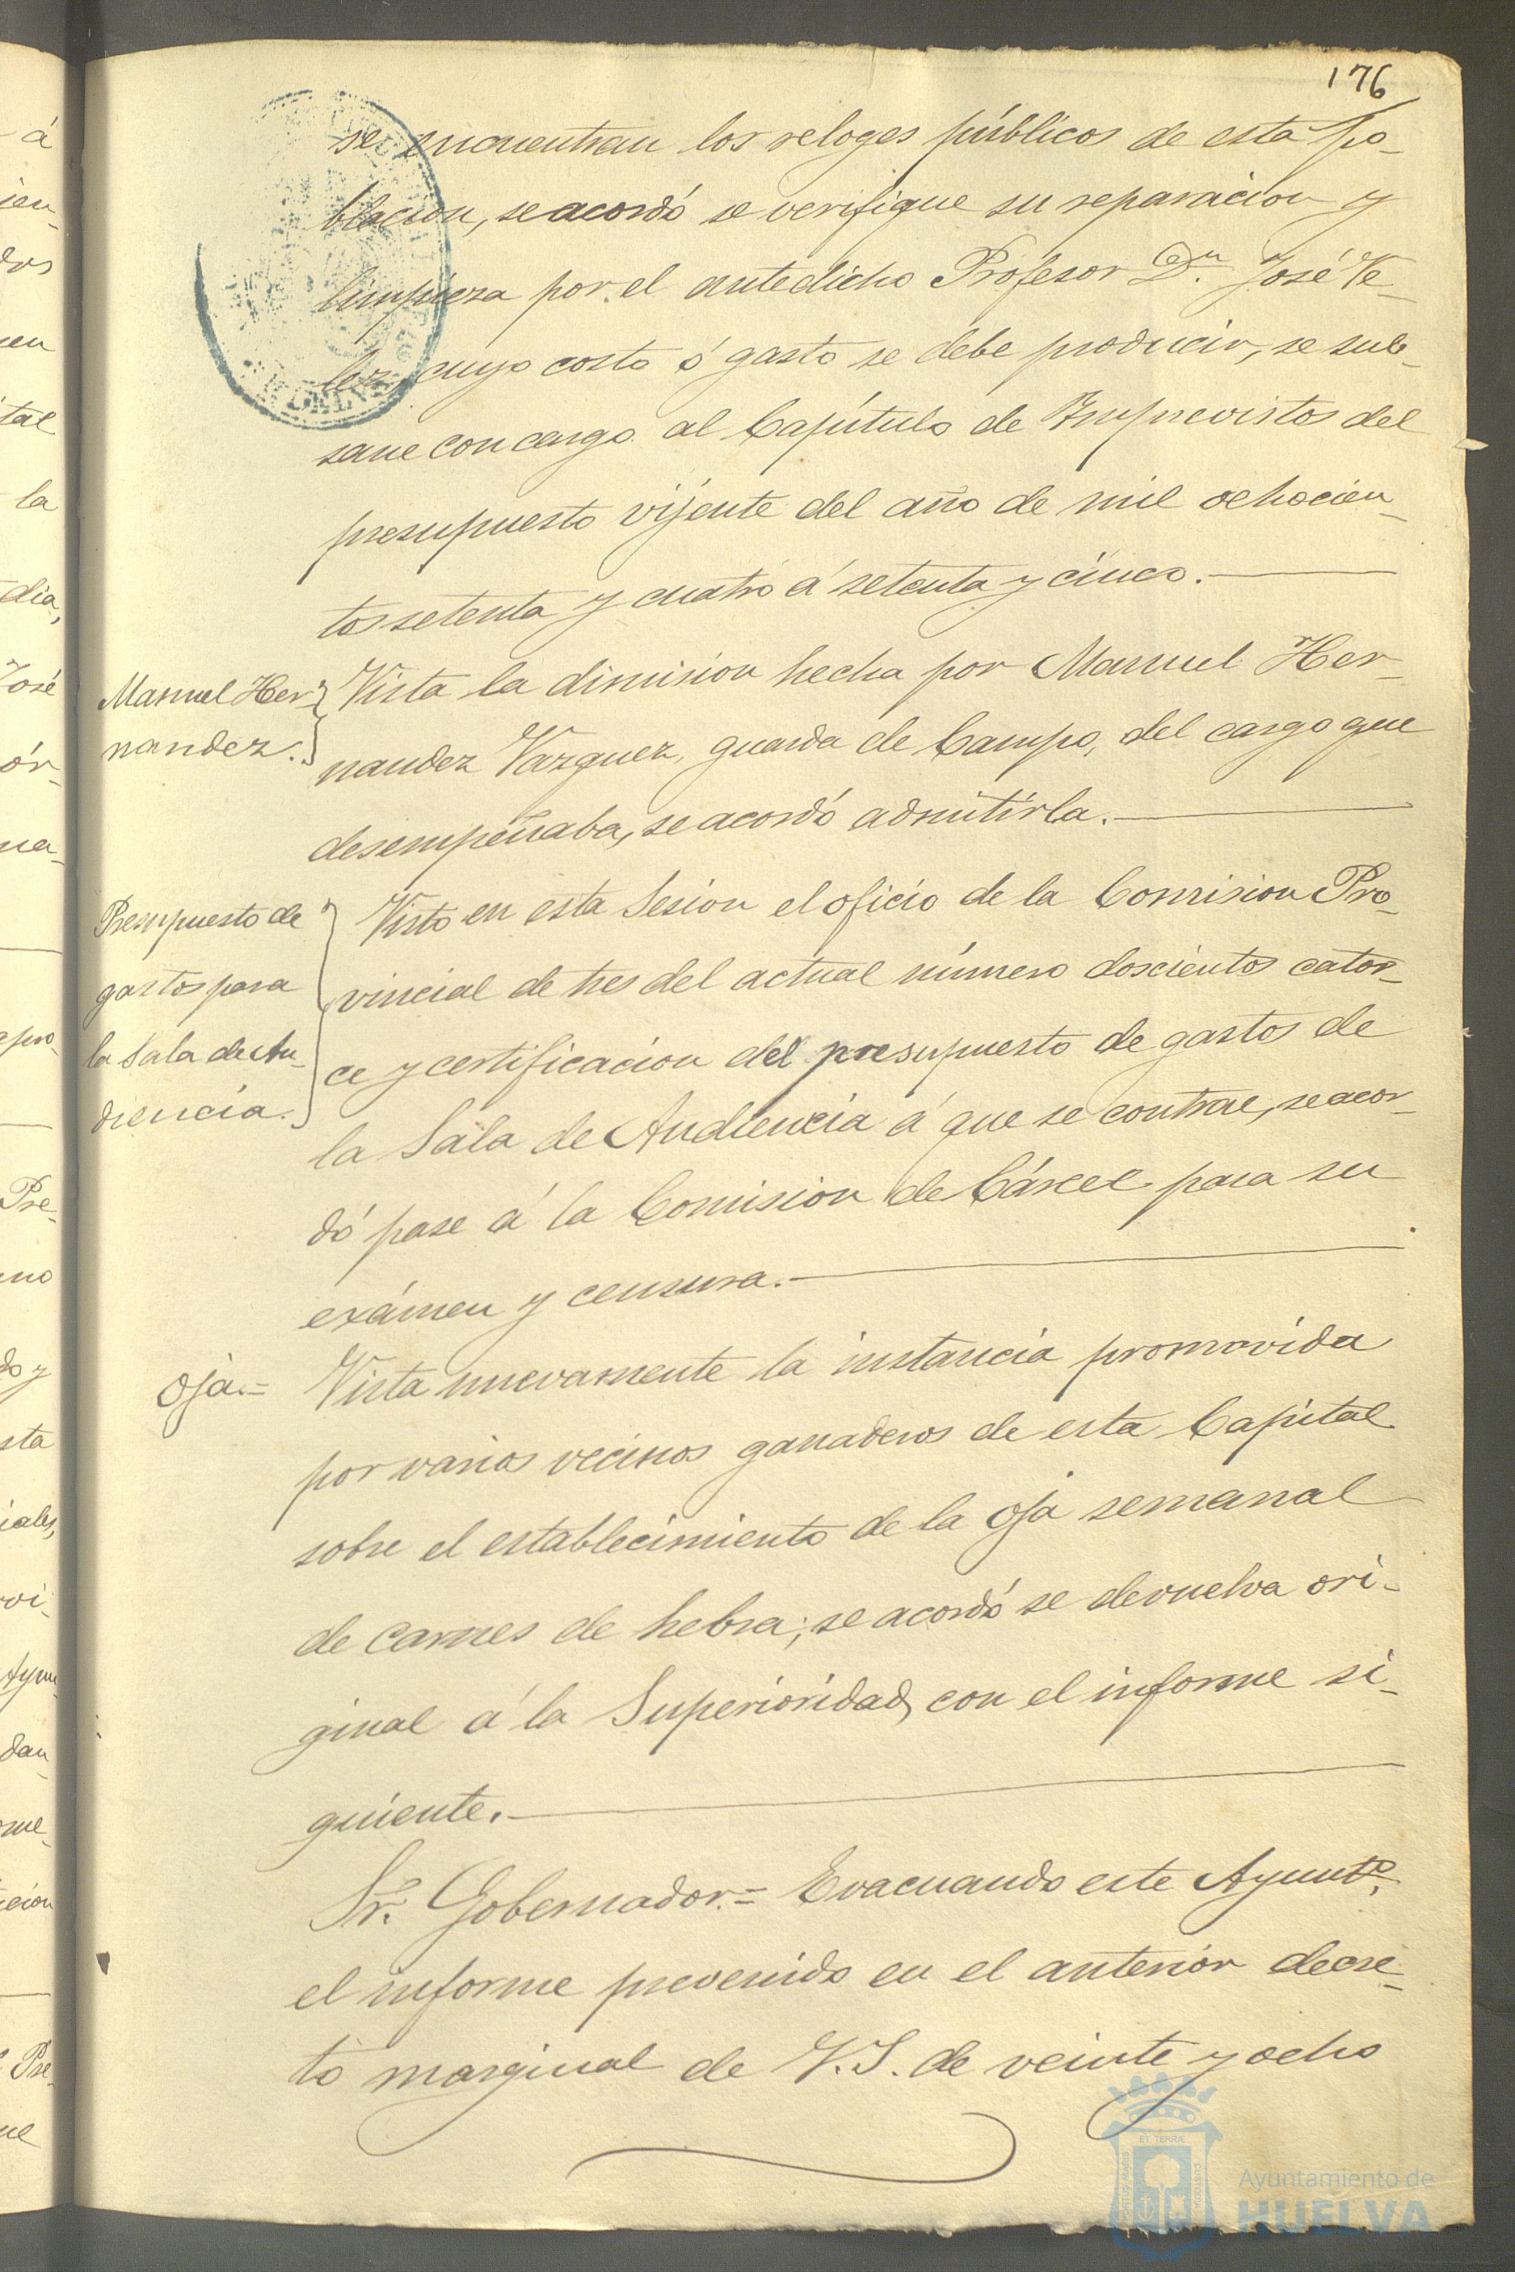 176
se encuentran los reloges públicos de esta po-
blacion, se acordó se verifique su reparacion y
limpieza por el antedicho Profesor Dn. José Ve-
lez, cuyo costo ó gasto se debe producir, se sub-
sane con cargo al Capítulo de Imprevistos del
presupuesto vijente del año de mil ochocien-
tos setenta y cuatro á setenta y cinco.
Manuel Her-
nandez.
Vista la dimision hecha por Manuel Her-
nandez Vazquez, guarda de Campo, del cargo que
desempeñaba, se acordó admitirla.
Presupuesto de
gastos para
la Sala de Au-
diencia.
Visto en esta Sesion el oficio de la Comision Pro-
vincial de tres del actual número doscientos cator-
ce y certificacion del presupuesto de gastos de
la Sala de Audiencia á que se contrae, se acor-
dó pase á la Comision de Cárcel para su
exámen y censura.
Oja.=
Vista nuevamente la instancia promovida
por varios vecinos ganaderos de esta Capital
sobre el establecimiento de la oja semanal
de carnes de hebra; se acordó se devuelva ori-
ginal á la Superioridad, con el informe si-
guiente.
Sr. Gobernador.= Evacuando este Ayuntº.
el informe prevenido en el anterior decre-
to marginal de V.S. de veinte y ocho
Ayuntamiento de
HUELVA